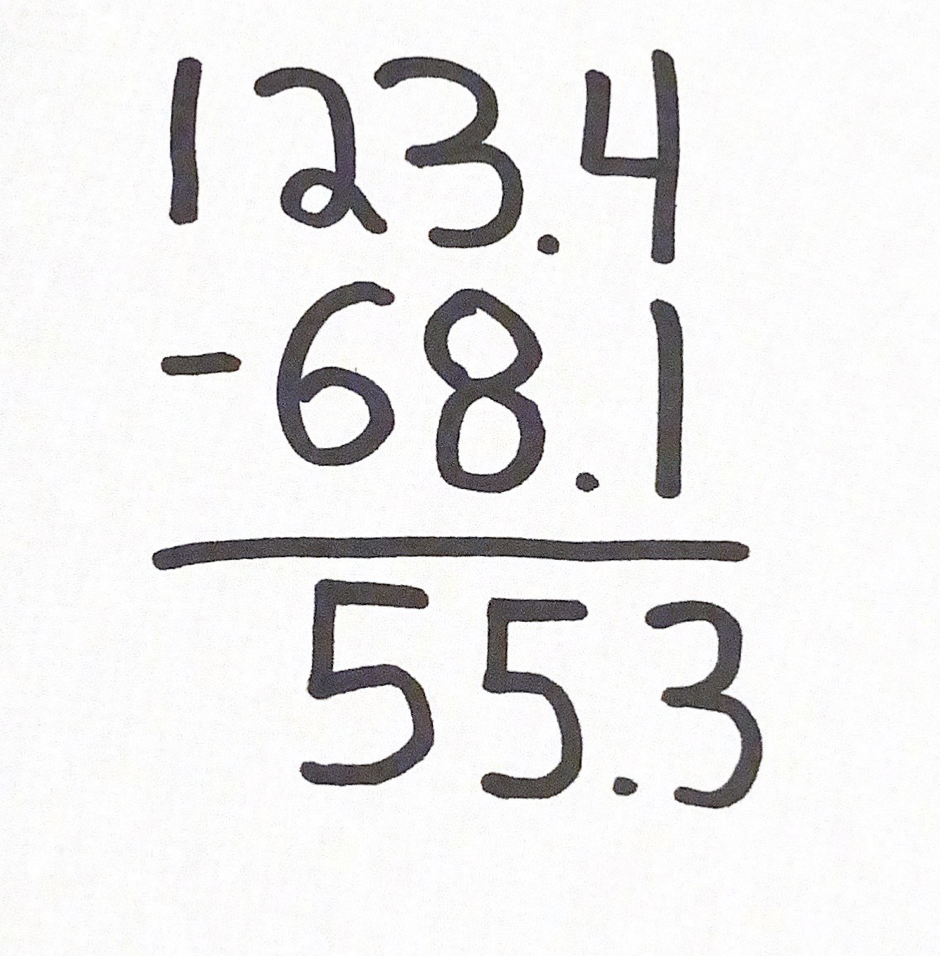 123.4
-68.1
55.3